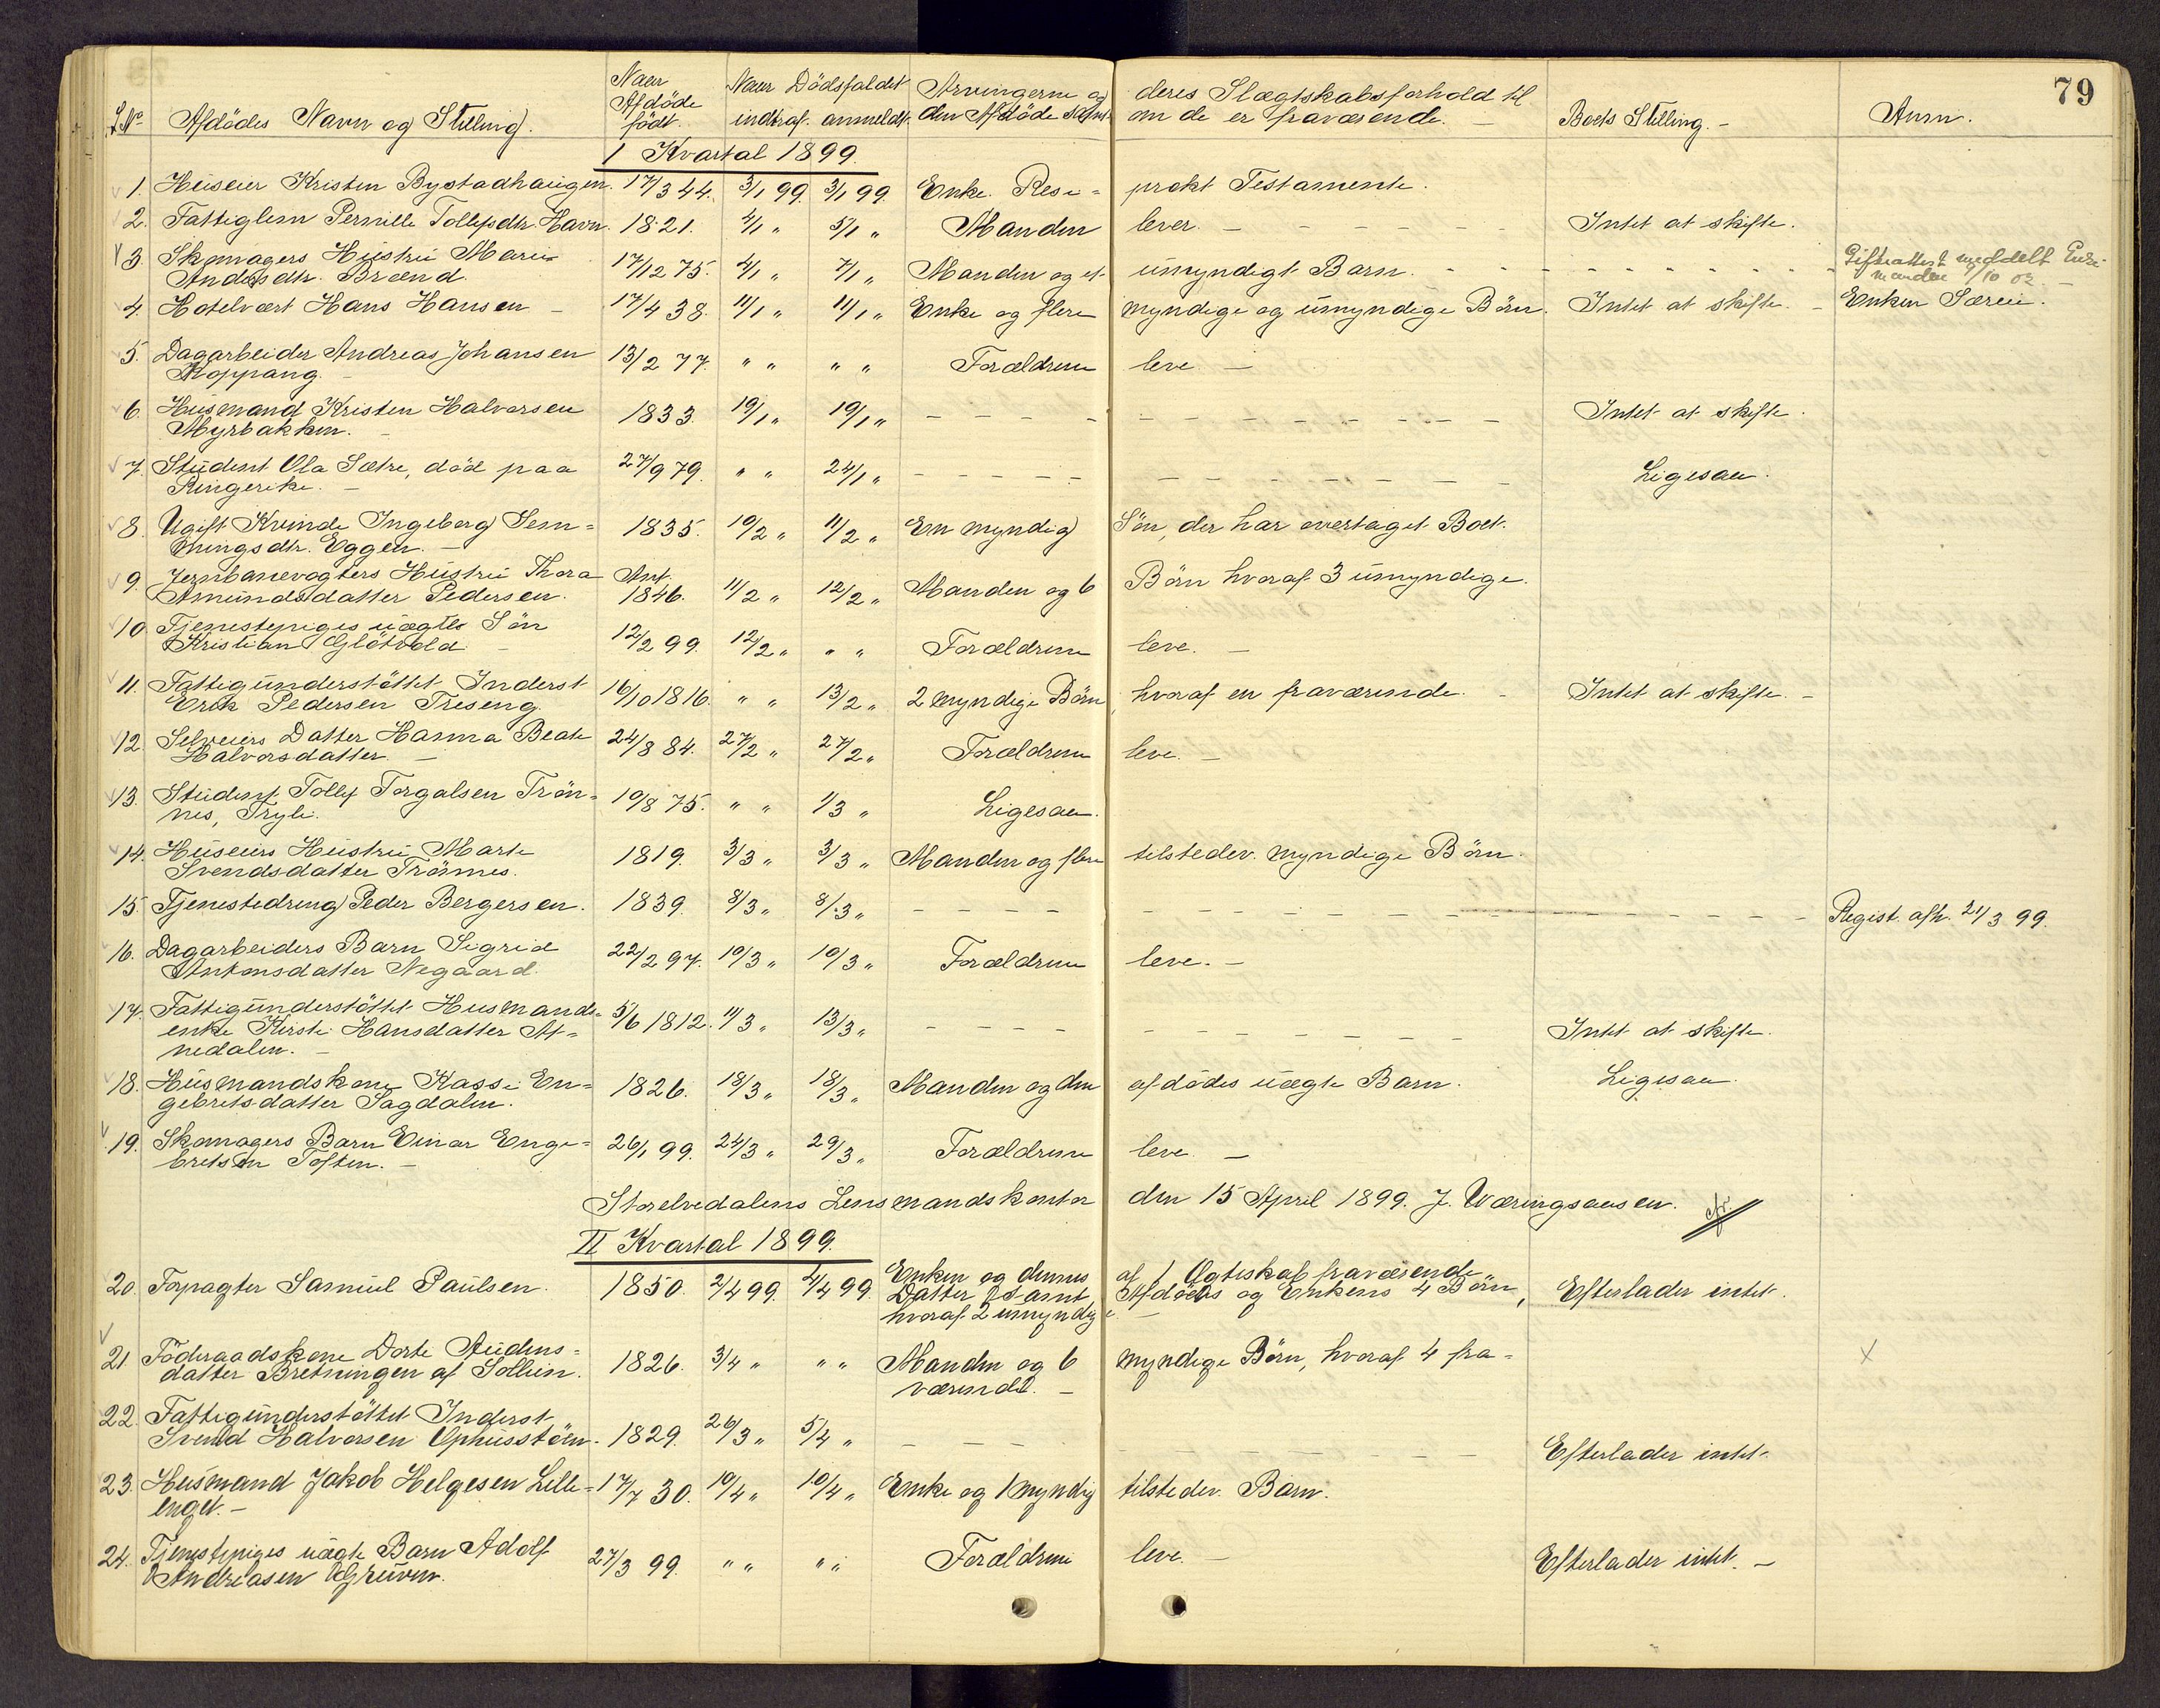 79
L№ Afdödes Navn og Stilling. Naar Afdöde födt. Naar Dödsfaldet indtraf. anmeldt. Arvingerne og deres Slægtskabsforhold til
den Afdöde samt om de er fraværende. Boets Stilling. Anm.
1 Kvartal 1899.
1. Huseier Kristen Bystadhaugen. 17/3 44. 3/1 99. 3/1 99. Enke. Resi= prokt Testamente.
2. Fattiglem Pernille Tollefsdtr. Havn. 1821. 4/1 " 5/1 " Manden lever. Intet at skifte.
3. Skomagers Hustru Marie
Andersdtr. Brænd. 17/12 75. 4/1 " 7/1 " Manden og et umyndigt Barn. Gifteattest meddelt Enke-
manden 9/10 02.
4. Hotelvært Hans Hansen 17/4 38. 11/1 " 11/1 " Enke og flere myndige og umyndige Börn. Intet at skifte. Enken Særeie.
5. Dagarbeider Andreas Johansen
Koppang. 13/2 77. " " " " Forældrene leve
6. Husmand Kristen Halvorsen
Myrbakken. 1833. 19/1 " 19/1 " Intet at skifte.
7. Student Ola Sætre, död paa
Ringerike. 27/9 79. " " 24/1 " Ligesaa.
8. Ugift Kvinde Ingeborg Sem=
mingsdtr. Eggen. 1835. 10/2 " 11/2 " En myndig Sön, der har overtaget Boet.
9. Jernbanevogters Hustru Thora
Amundsdatter Pedersen. Ant. 1846. 11/2 " 12/2 " Manden og 6 Börn hvoraf 3 umyndige.
10. Tjenestepiges uægte Sön
Kristian Glötvold. 12/2 99. 12/2 " " " Forældrene leve.
11. Fattigunderstöttet Inderst
Erik Pedersen Treseng. 16/10 1816. " " 13/2 " 2 myndige Börn, hvoraf en fraværende. Intet at skifte.
12. Selveiers Datter Hanna Beate
Halvorsdatter. 24/8 84. 27/2 " 27/2 " Forældrene leve.
13. Student Tollef Torgalsen Trön=
nes, Tryli. 10/8 75. " " 1/3 " Ligesaa.
14. Huseiers Hustru Marte
Svendsdatter Trönnes. 1819. 3/3 " 3/3 " Manden og flere tilstedev. myndige Börn.
15. Tjenestedreng Peder Bergersen. 1839. 8/3 " 8/3 " Regist. afh. 21/3 99.
16. Dagarbeiders Barn Sigrid
Antonsdatter Negaard. 22/2 97. 10/3 " 10/3 " Forældrene leve.
17. Fattigunderstöttet Husmands=
enke Kirsti Hansdatter At=
nedalen. 5/6 1812. 11/3 " 13/3 " Intet at skifte.
18. Husmandskone Kasse En=
gebretsdatter Sagdalen. 1826. 18/3 " 18/3 " Manden og den afdödes uægte Barn. Ligesaa.
19. Skomagers Barn Einar Enge=
bretsen Toften. 26/1 99. 24/3 " 29/3 " Forældrene leve
Storelvedalens Lensmandskontor den 15 April 1899. J. Wæringsaasen.
II Kvartal 1899.
20. Forpagter Samuel Paulsen. 1850. 2/4 99. 4/4 99. Enken og dennes af 1 Ægteskab fraværende
Datter samt Afdödes og Enkens 4 Börn,
hvoraf 2 umyndige. Efterlader intet.
21. Föderaadskone Dorte Audens=
datter Bretningen af Sollien. 1826. 3/4 " " " Manden og 6 myndige Börn, hvoraf 4 fra=
værende. X
22. Fattigunderstöttet Inderst
Svend Halvorsen Ophusstöen. 1829. 26/3 " 5/4 " Efterlader intet.
23. Husmand Jakob Helgesen Lille=
enget. 17/7 30. 10/4 " 10/4 " Enke og 1 myndig tilstedev. Barn.
24. Tjenestepiges uægte Barn Adolf
Andreasen Gruven. 27/3 99. " " " " Forældrene leve. Efterlader intet.